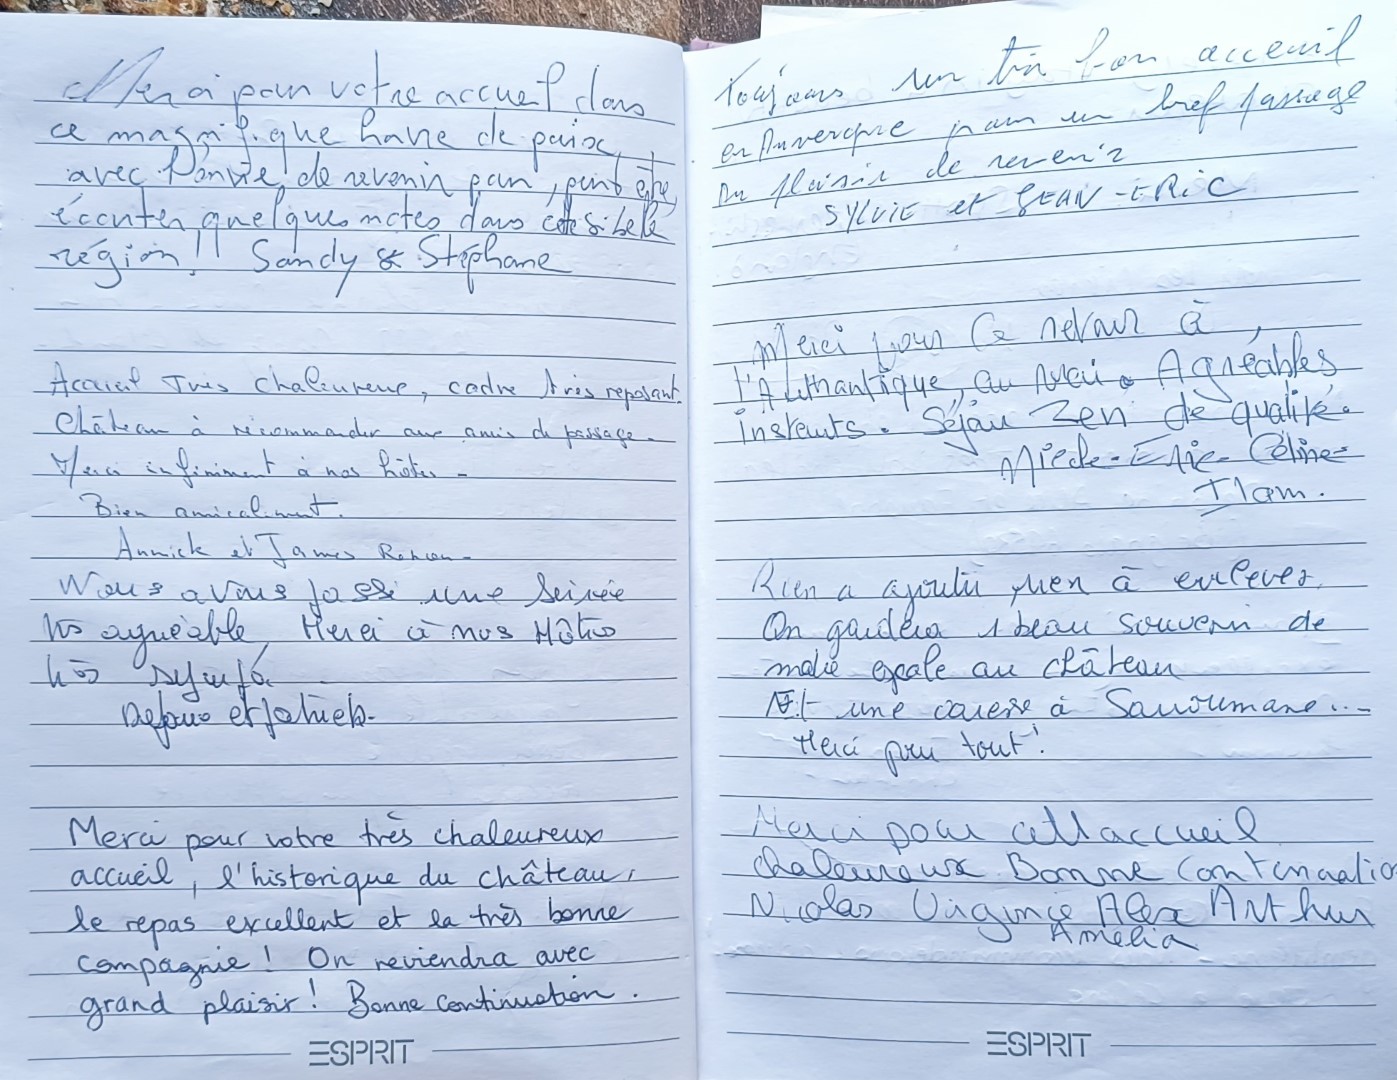 Merci pour votre accueil dans
ce magnifique havre de paix,
avec l'envie de revenir pour, peut être,
écouter quelques notes dans cette si belle
région !! Sandy & Stéphane
Accueil Très chaleureux, cadre très reposant.
Château à recommander aux amis de passage.
Merci infiniment à nos hôtes -
Bien amicalement.
Annick et James
Nous avons passé une soirée
très agréable. Merci à nos Hôtes
très sympa.
et
Merci pour votre très chaleureux
accueil, l'historique du château,
le repas excellent et la très bonne
compagnie ! On reviendra avec
grand plaisir ! Bonne continuation.
ESPRIT
Toujours un très bon acceuil
en Auvergne pour un bref passage
Au plaisir de revenir
SYLVIE et JEAN-ERIC
Merci pour ce retour à
l'Authantique, au vrai. Agréables
instants. Séjour Zen de qualité.
Eric - Céline -
Rien a ajouter rien à enlever.
On gardera 1 beau souvenir de
escale au château
Et une caresse à
Merci pour tout !
Merci pour cett accueil
chaleureux Bonne Continuatio
Nicolas Virginie Alex Arthur
Amélia
ESPRIT